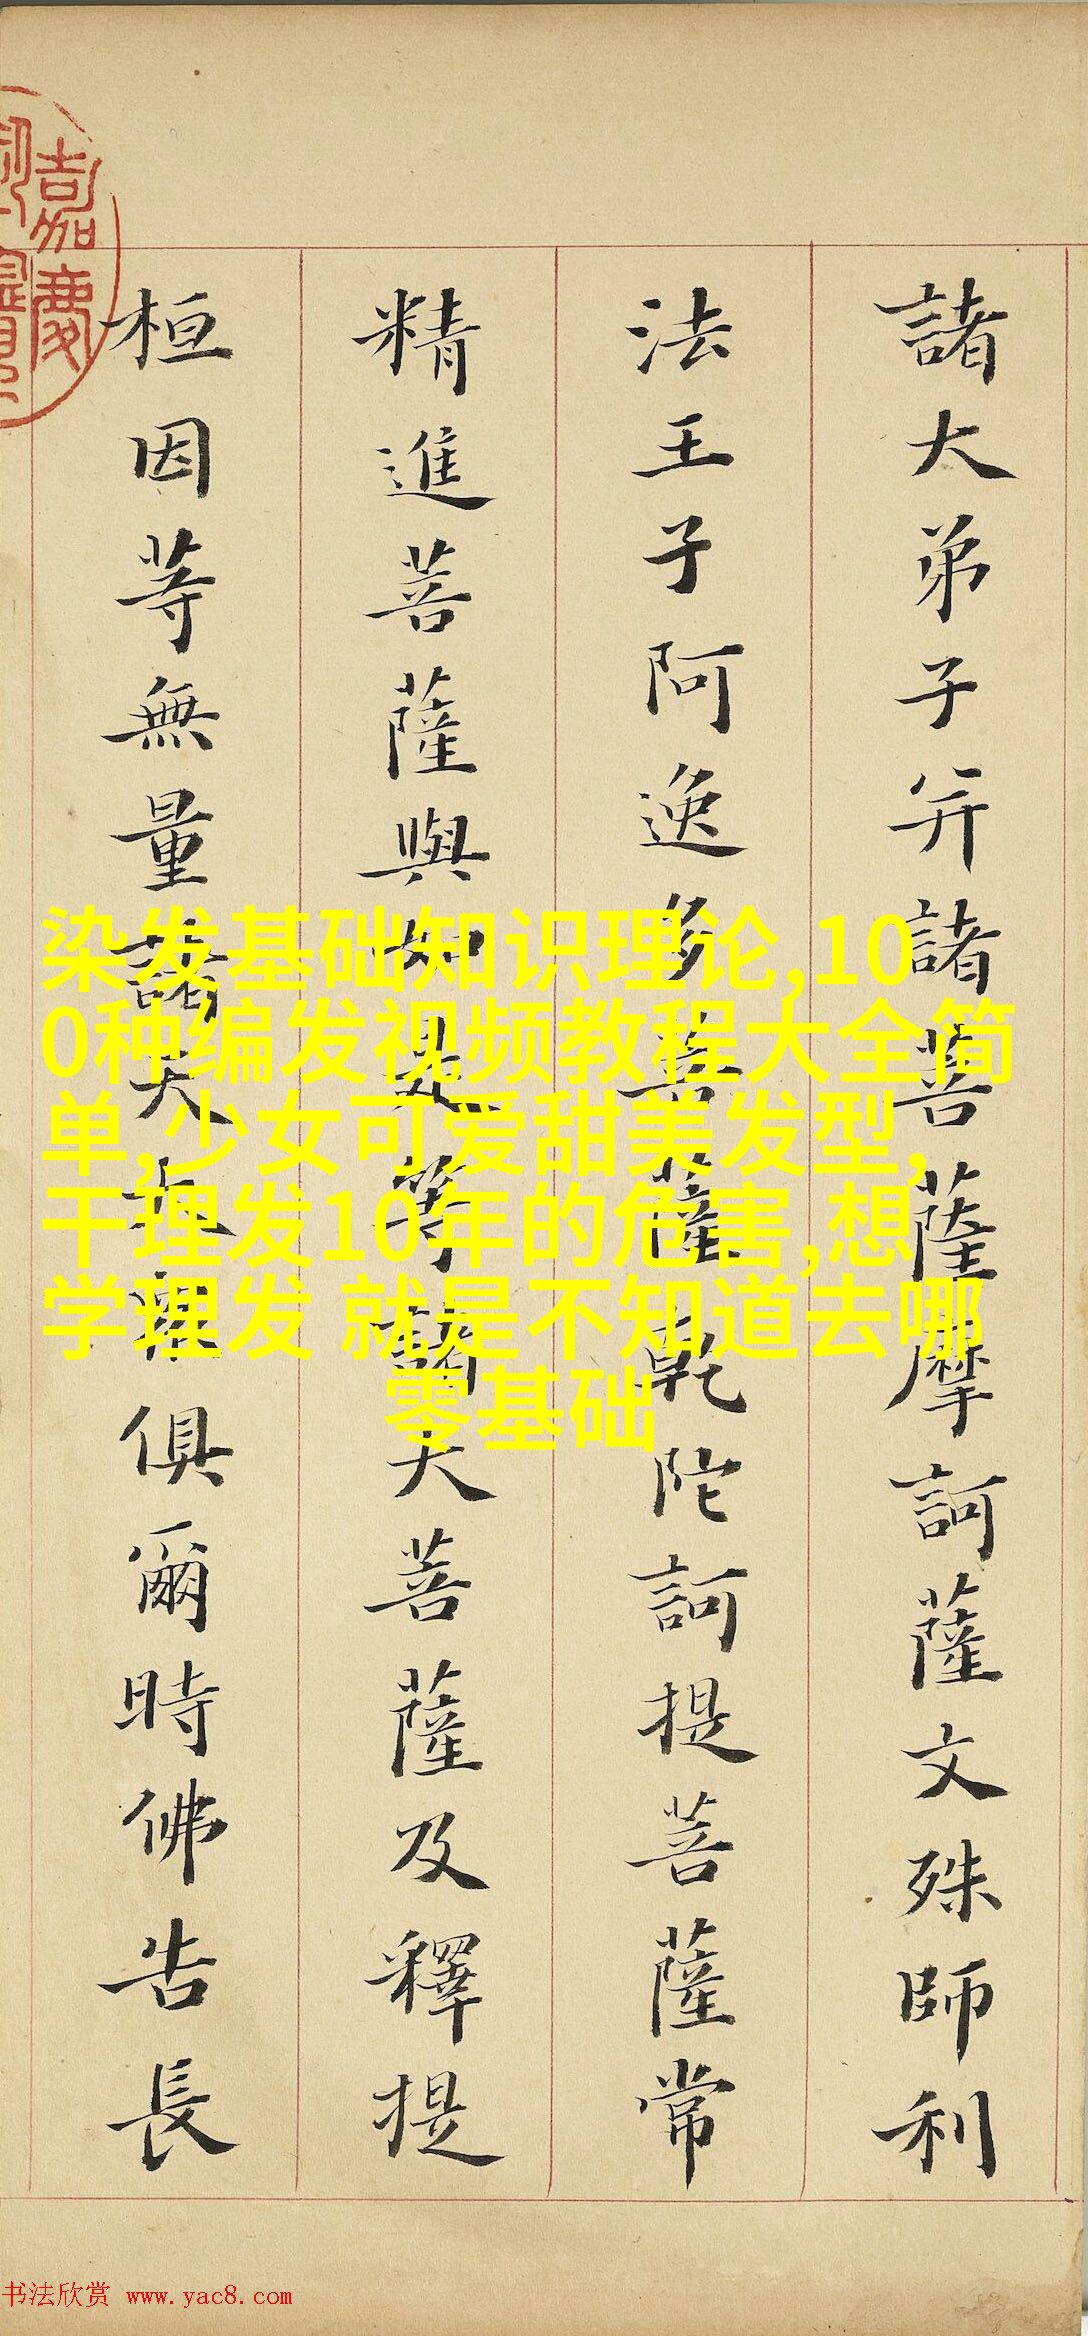 諸大弟子并諸菩薩摩訶薩文殊師利
法王子阿逸多菩薩乾陀訶提菩薩常
精進菩薩與如是等諸大菩薩及釋提
桓因等無量諸天大眾俱爾時佛告長
嘉慶
染发基础知识理论,10
0种编发视频教程大全简
单,少女可爱甜美发型,
干理发10年的危害,想
学理发 就是不知道去哪
零基础
书法欣赏 www.yac8.com